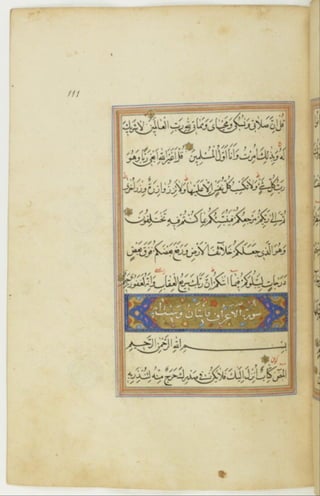 ١١١
قُلْ إِنَّ صَلَاتِي وَنُسُكِي وَمَحْيَايَ وَمَمَاتِي لِلَّهِ رَبِّ الْعَالَمِينَ لَا شَرِيكَ
لَهُ وَبِذَلِكَ أُمِرْتُ وَأَنَا أَوَّلُ الْمُسْلِمِينَ قُلْ أَغَيْرَ اللَّهِ أَبْغِي رَبًّا وَهُوَ
رَبُّ كُلِّ شَيْءٍ وَلَا تَكْسِبُ كُلُّ نَفْسٍ إِلَّا عَلَيْهَا وَلَا تَزِرُ وَازِرَةٌ وِزْرَ أُخْرَى
ثُمَّ إِلَى رَبِّكُمْ مَرْجِعُكُمْ فَيُنَبِّئُكُمْ بِمَا كُنْتُمْ فِيهِ تَخْتَلِفُونَ
وَهُوَ الَّذِي جَعَلَكُمْ خَلَائِفَ الْأَرْضِ وَرَفَعَ بَعْضَكُمْ فَوْقَ بَعْضٍ
دَرَجَاتٍ لِيَبْلُوَكُمْ فِي مَا آتَاكُمْ إِنَّ رَبَّكَ سَرِيعُ الْعِقَابِ وَإِنَّهُ لَغَفُورٌ رَحِيمٌ
سورة الاعراف مايتان
بِسْمِ اللَّهِ الرَّحْمَنِ الرَّحِيمِ
المص كِتَابٌ أُنْزِلَ إِلَيْكَ فَلَا يَكُنْ فِي صَدْرِكَ حَرَجٌ مِنْهُ لِتُنْذِرَ بِهِ